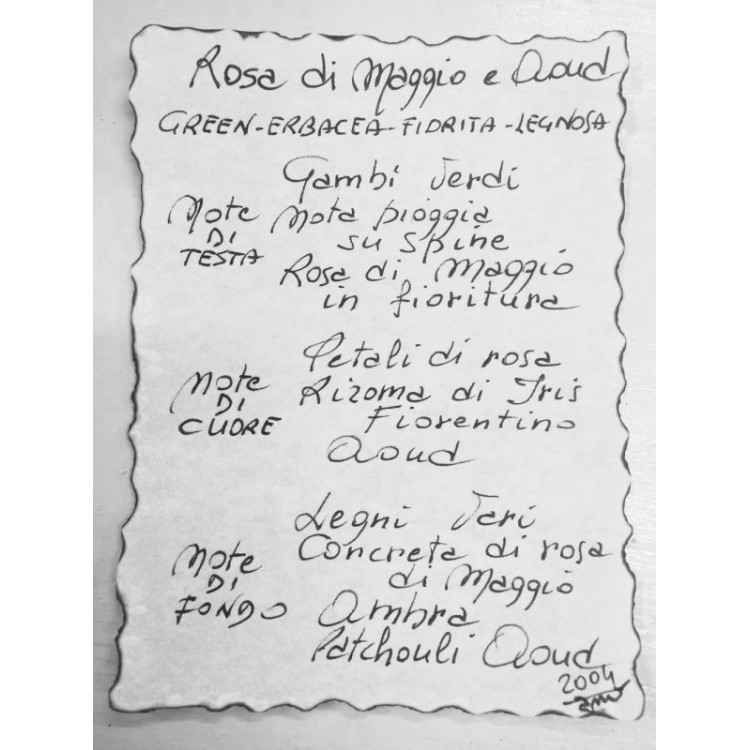 Rosa di Maggio e Aoud
GREEN-ERBACEA-FIORITA-LEGNOSA
Gambi Verdi
Note Nota pioggia
DI su spine
TESTA
Rosa di Maggio
in fioritura
Petali di rosa
Note Rizoma di Iris
DI Fiorentino
CUORE
Aoud
Legni Vari
Note Concreta di rosa
DI di Maggio
FONDO Ambra
Patchouli Aoud
2004